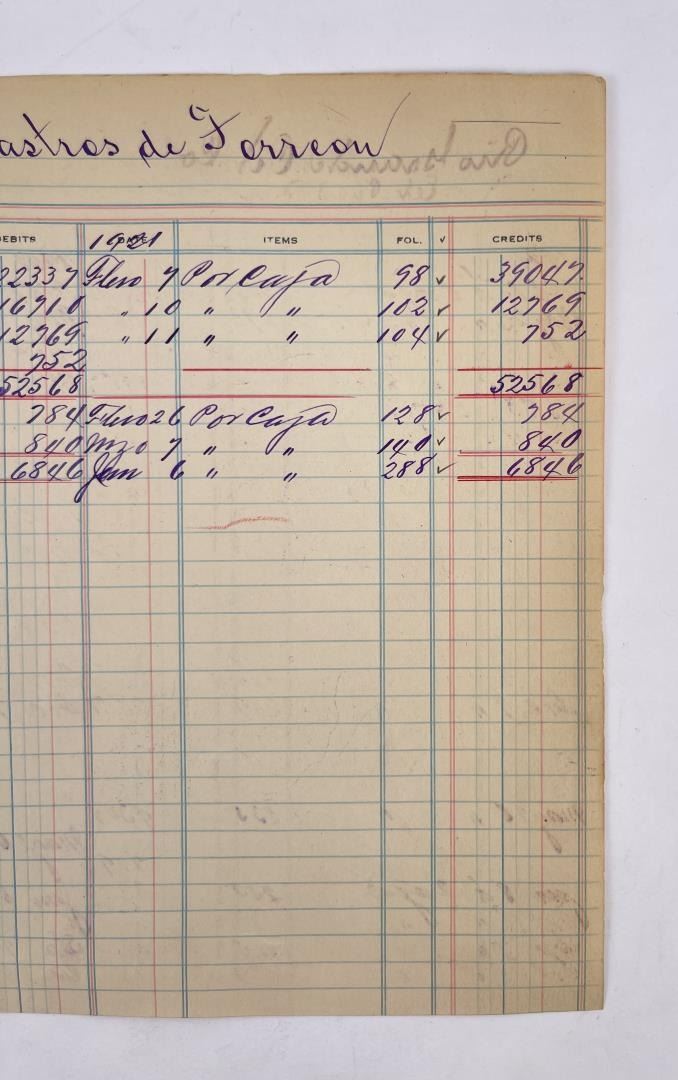 astros de Torreon
EBITS 1921 DATE ITEMS FOL. √ CREDITS
22337 Fbro 7 Por Caja 98 √ 39047
16710 " 10 " " 102 √ 12769
12769 " 11 " " 104 √ 752
752
52568 52568
784 Fbro 26 Por Caja 128 √ 784
840 Mzo 7 " " 140 √ 840
6846 6 " " 288 √ 6846